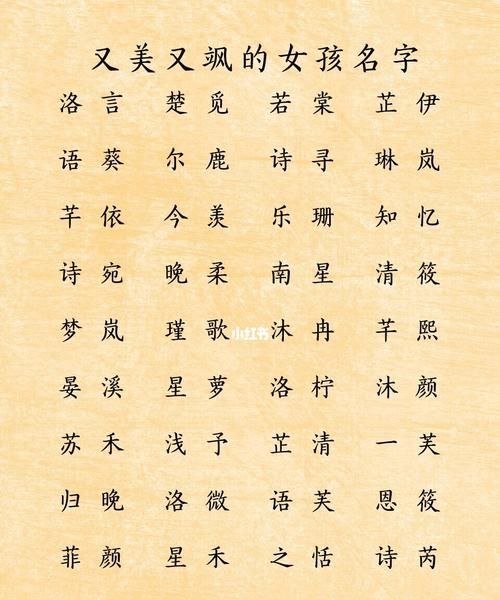 又美又飒的女孩名字
洛言 楚觅 若棠 芷伊
语葵 尔鹿 诗寻 琳岚
芊依 今羡 乐珊 知忆
诗宛 晚柔 南星 清筱
梦岚 瑾歌 沐冉 芊熙
小红书
晏溪 星萝 洛柠 沐颜
苏禾 浅予 芷清 一芙
归晚 洛微 语芙 恩筱
菲颜 星禾 之恬 诗芮